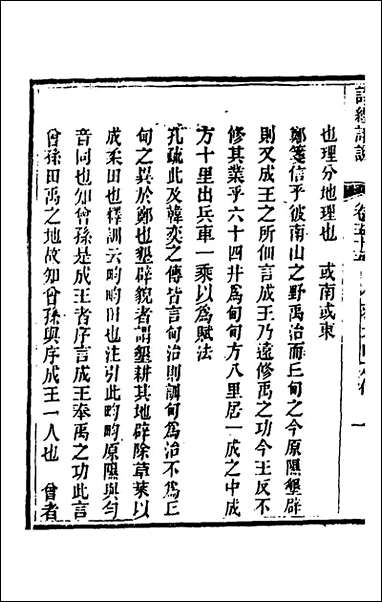 詩經詩說
也理分地理也　或南或東
鄭箋信乎彼南山之野禹治而丘甸之今原隰墾辟
則又成王之所佃言成王乃遠修禹之功今王反不
修其業乎六十四井爲甸甸方八里居一成之中成
方十里出兵車一乘以爲賦法
孔疏此及韓奕之傳皆言甸治則訓甸爲治不爲丘
甸之異於鄭也墾辟貌者謂墾耕其地辟除草萊以
成柔田也釋訓云畇畇田也注引此畇畇原隰與勻
音同也知曾孫是成王者序言成王奉禹之功此言
曾孫田禹之地故知曾孫與序成王一人也　曾者